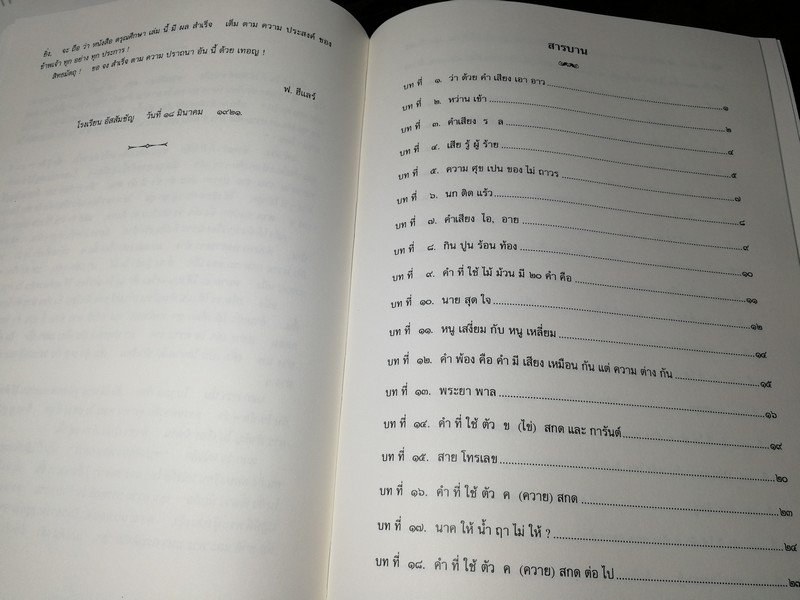 ยิ่ง. จะ ถือ ว่า หนังสือ ดรุณศึกษา เล่ม นี้ มี ผล สำเร็จ เต็ม ตาม ความ ประสงค์ ของ
ข้าพเจ้า ทุก อย่าง ทุก ประการ !
สิทธมัสถุ ! ขอ จง สำเร็จ ตาม ความ ปราถนา อัน นี้ ด้วย เทอญ !
ฟ. ฮีแลร์
โรงเรียน อัสสัมชัญ วันที่ ๑๘ มีนาคม ๑๙๒๑.
สารบาน
บท ที่ ๑. ว่า ด้วย คำ เสียง เอา อาว ๑
บท ที่ ๒. หว่าน เข้า ๒
บท ที่ ๓. คำเสียง ร ล ๔
บท ที่ ๔. เสีย รู้ ผู้ ร้าย ๕
บท ที่ ๕. ความ ศุข เปน ของ ไม่ ถาวร ๗
บท ที่ ๖. นก ติด แร้ว ๘
บท ที่ ๗. คำเสียง ไอ, อาย ๙
บท ที่ ๘. กิน ปูน ร้อน ท้อง ๑๐
บท ที่ ๙. คำ ที่ ใช้ ไม้ ม้วน มี ๒๐ คำ คือ ๑๑
บท ที่ ๑๐. นาย สุด ใจ ๑๒
บท ที่ ๑๑. หนู เสงี่ยม กับ หนู เหลี่ยม ๑๔
บท ที่ ๑๒. คำ พ้อง คือ คำ มี เสียง เหมือน กัน แต่ ความ ต่าง กัน ๑๕
บท ที่ ๑๓. พระยา พาล ๑๖
บท ที่ ๑๔. คำ ที่ ใช้ ตัว ข (ไข่) สกด และ การันต์ ๑๙
บท ที่ ๑๕. สาย โทรเลข ๒๐
บท ที่ ๑๖. คำ ที่ ใช้ ตัว ค (ควาย) สกด ๒๓
บท ที่ ๑๗. นาค ให้ น้ำ ฤา ไม่ ให้ ? ๒๔
บท ที่ ๑๘. คำ ที่ ใช้ ตัว ค (ควาย) สกด ต่อ ไป